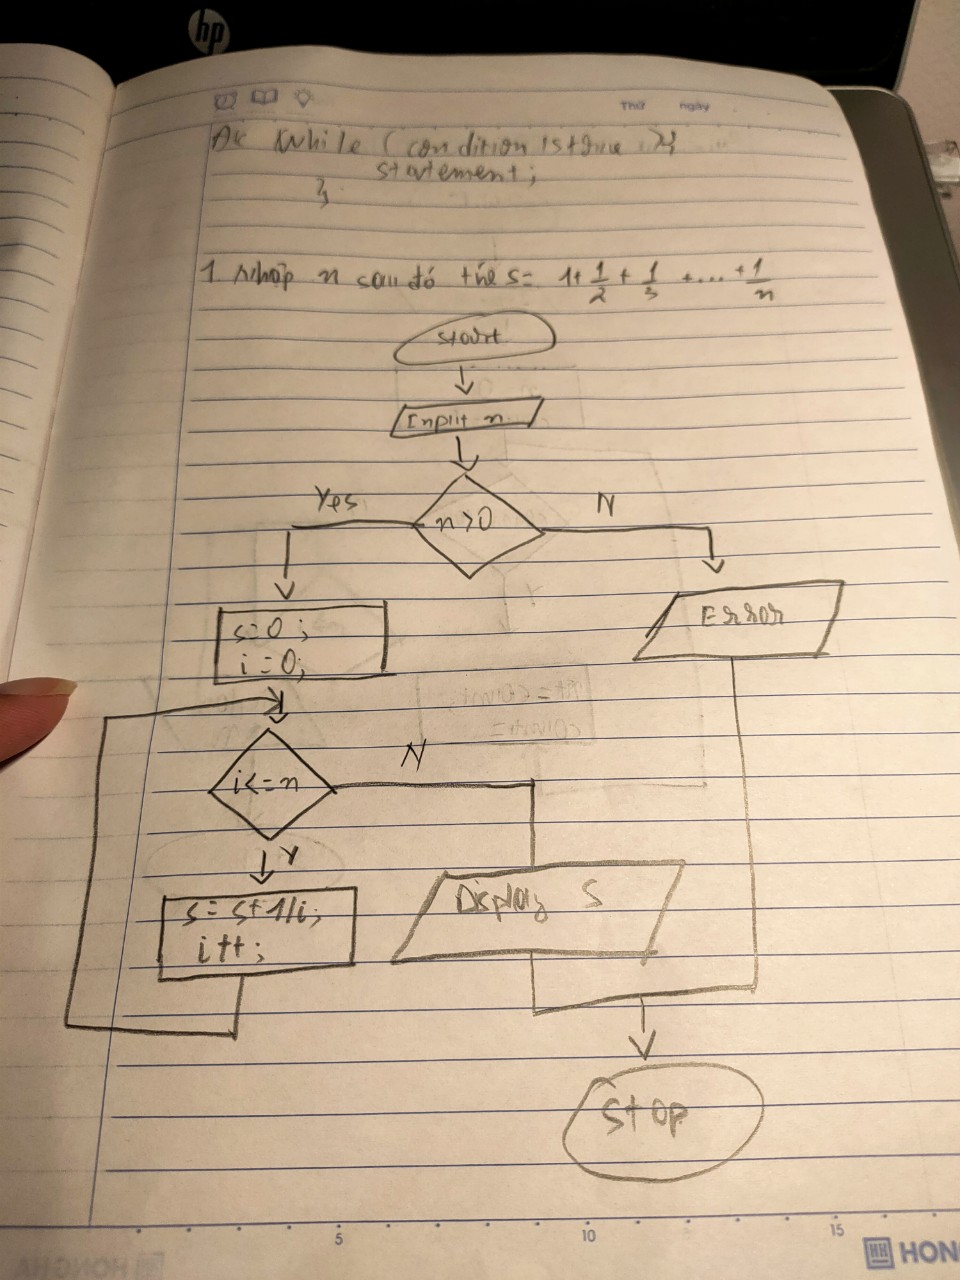 hp
Thứ ngày
While ( condition is true ){
statement;
}
1. Nhập n sau đó tính s= 1+ 1/2 + 1/3 +....+ 1/n
Start
Input n
n>0
Yes
N
s=0;
i=0;
Error
i<=n
N
Y
s= s+1/i;
i++;
Display S
Stop
5 10 15
HH HON